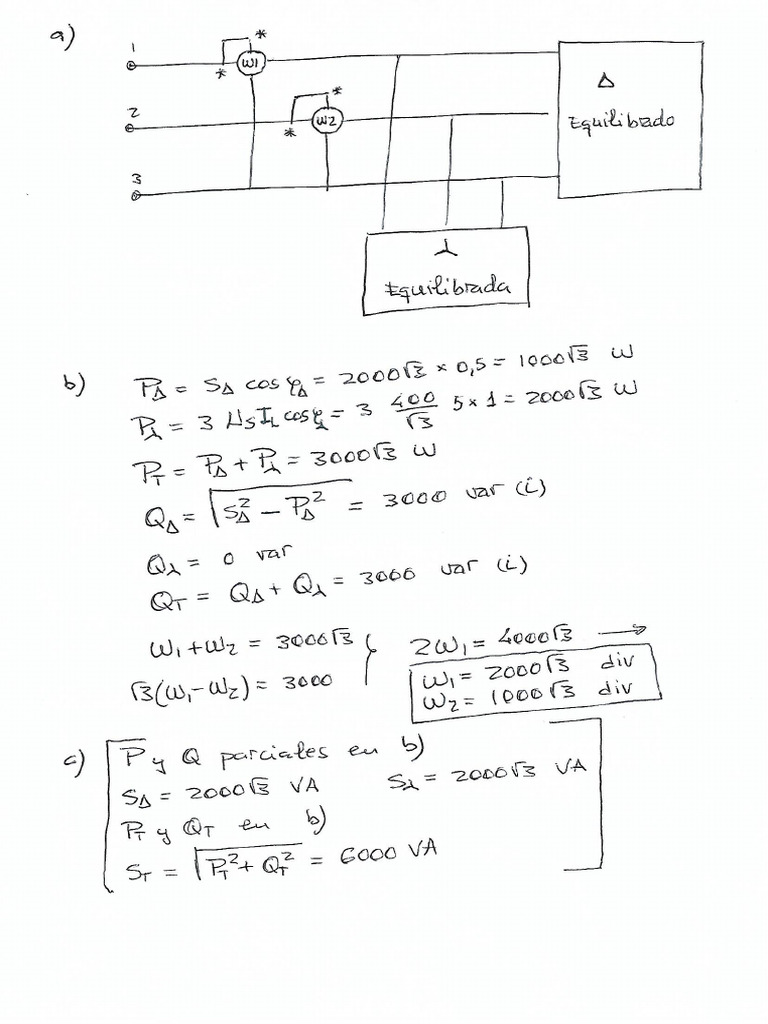 a)
1 * * W1
2 * * W2
3
Δ
Equilibrado
⅄
Equilibrada
b) PΔ = SΔ cos φΔ = 2000√3 × 0,5 = 1000√3 W
P⅄ = 3 USIL cos φ⅄ = 3 400/√3 5 × 1 = 2000√3 W
PT = PΔ + P⅄ = 3000√3 W
QΔ = √(SΔ² − PΔ²) = 3000 var (i)
Q⅄ = 0 var
QT = QΔ + Q⅄ = 3000 var (i)
W1 + W2 = 3000√3 } 2W1 = 4000√3 →
√3(W1 − W2) = 3000 W1 = 2000√3 div
W2 = 1000√3 div
c) P y Q parciales en b)
SΔ = 2000√3 VA S⅄ = 2000√3 VA
PT y QT en b)
ST = √(PT² + QT²) = 6000 VA